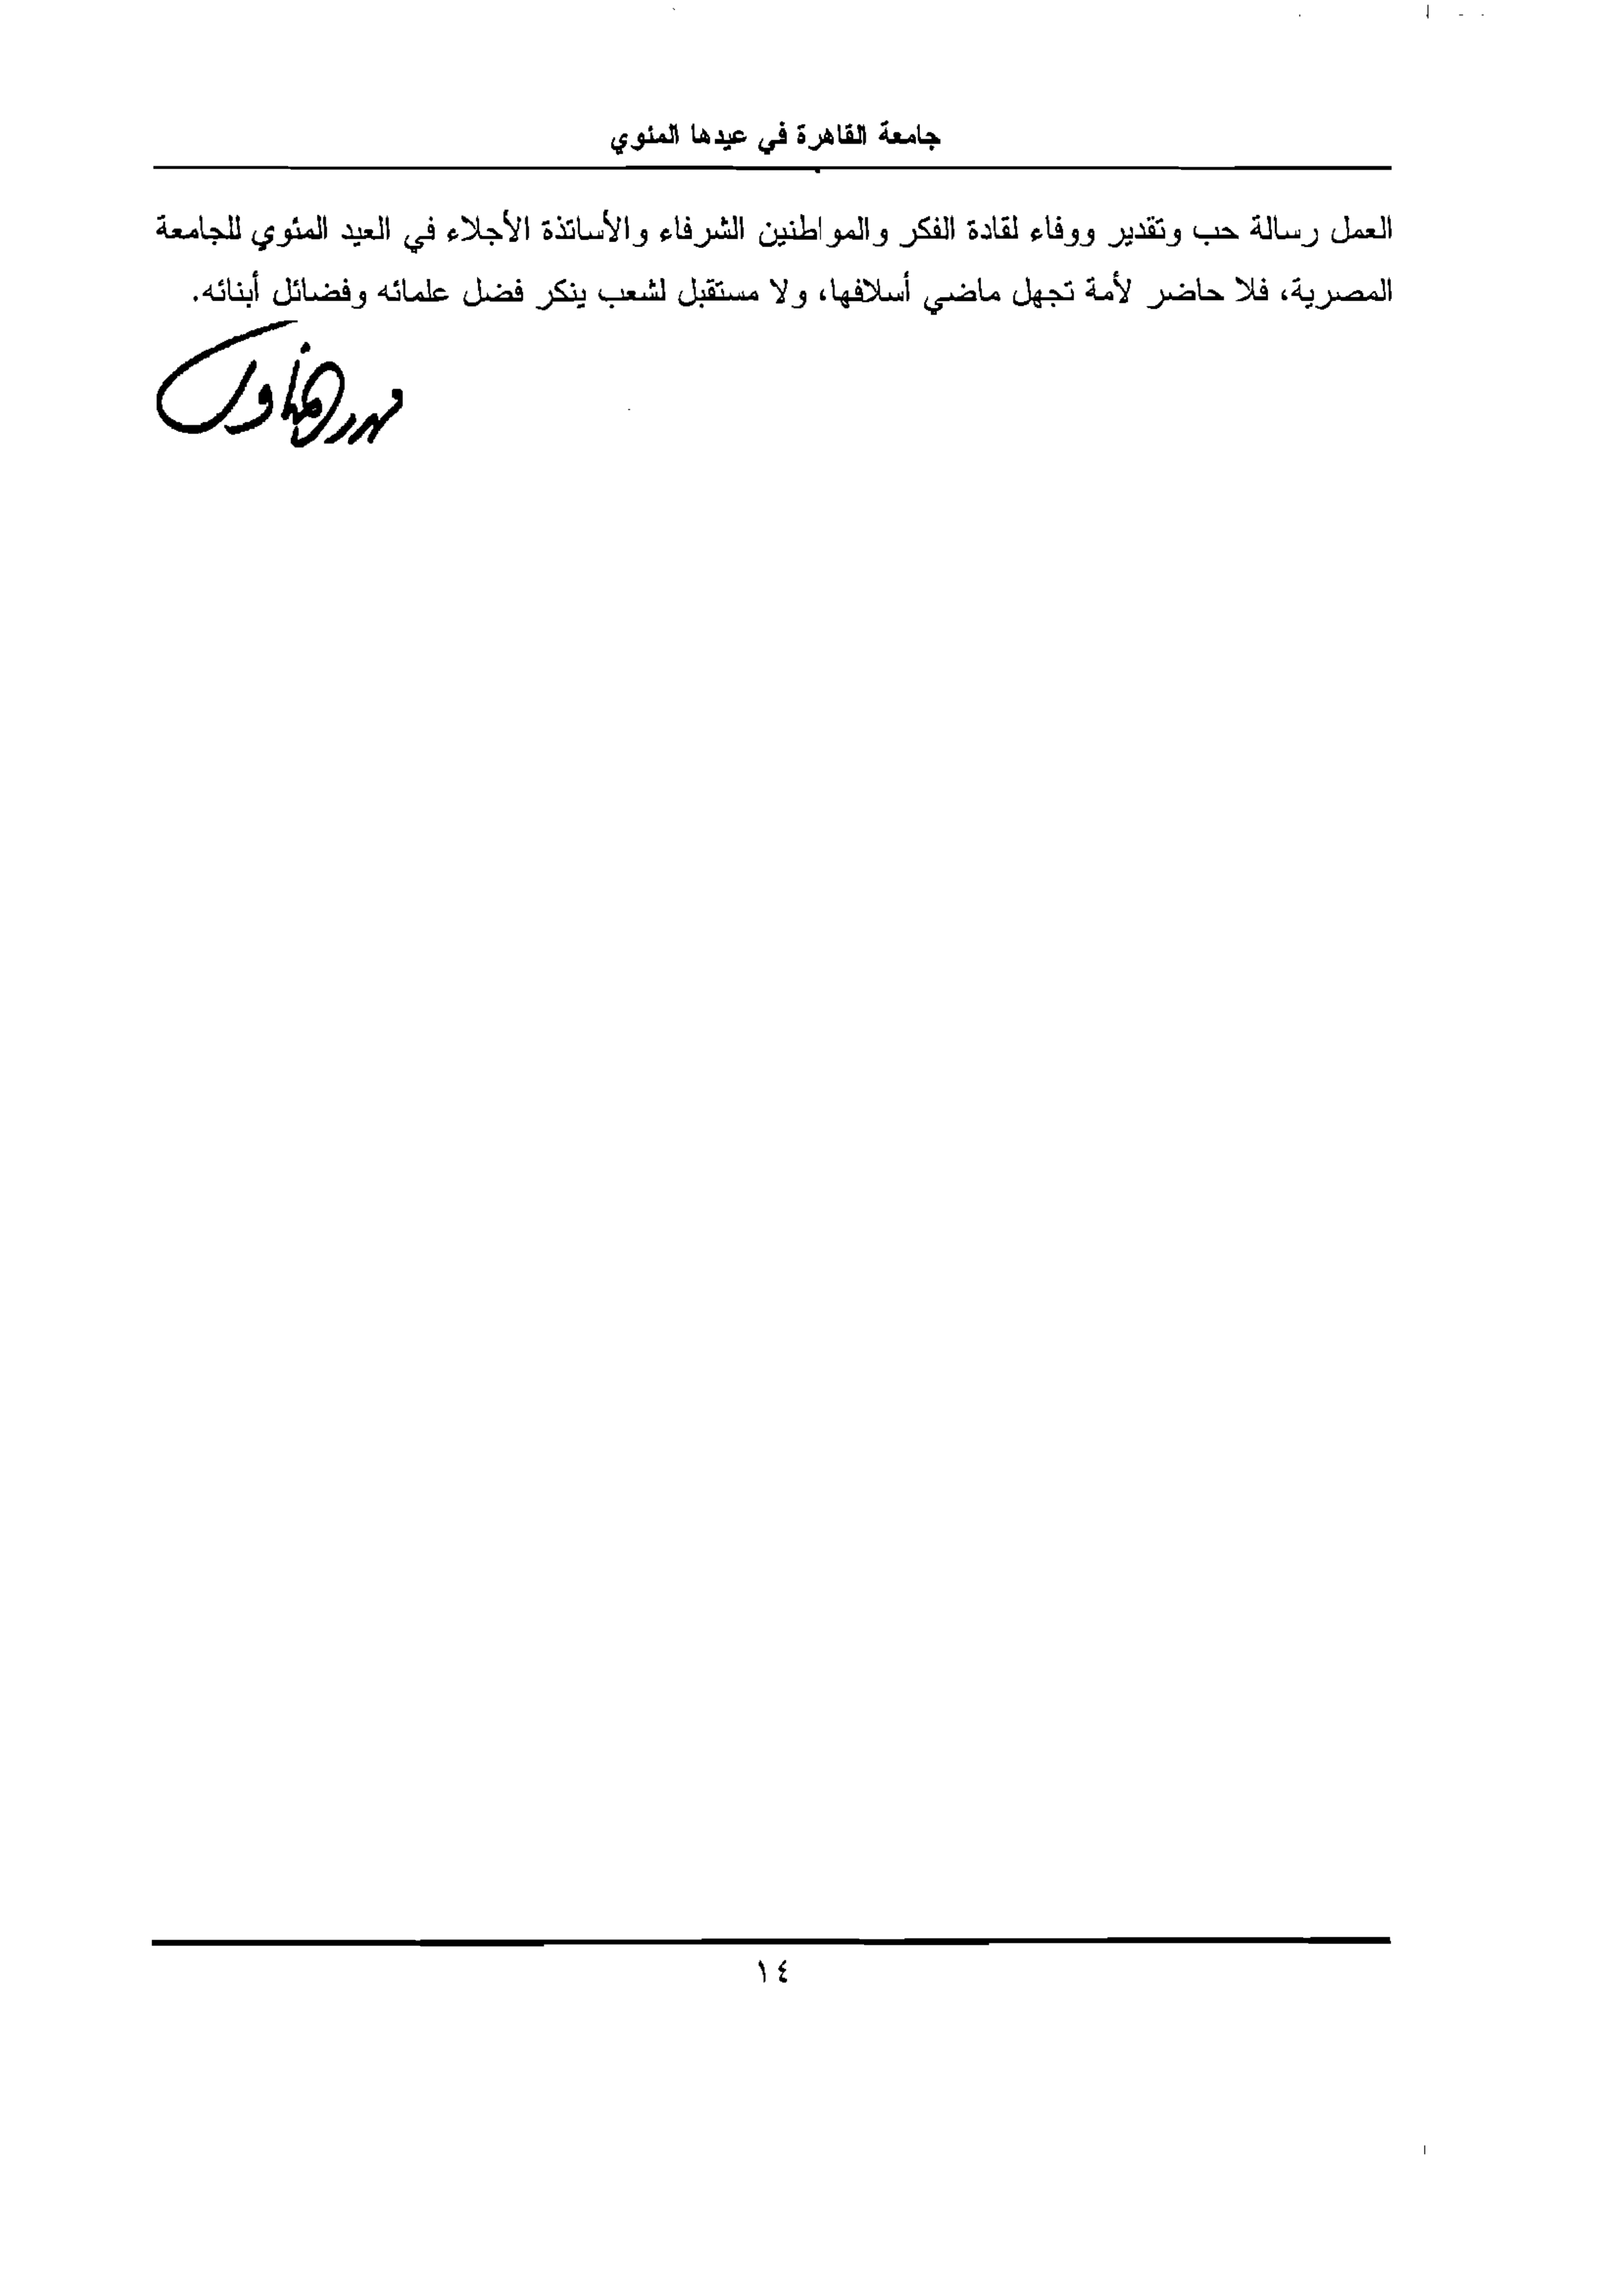 جامعة القاهرة في عيدها المئوي
العمل رسالة حب وتقدير ووفاء لقادة الفكر والمواطنين الشرفاء والأساتذة الأجلاء في العيد المئوي للجامعة
المصرية، فلا حاضر لأمة تجهل ماضي أسلافها، ولا مستقبل لشعب ينكر فضل علمائه وفضائل أبنائه.
١٤